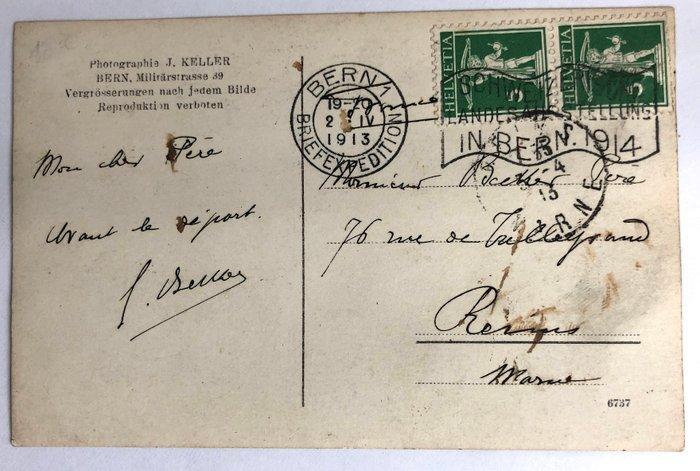 Photographie J. KELLER
BERN, Militärstrasse 39
Vergrösserungen nach jedem Bilde
Reproduktion verboten
Mon cher Père
Avant le départ.
BERN 1
19-20
2 IV
1913
BRIEFEXPEDITION
HELVETIA 5
HELVETIA 5
SCHWEIZ
LANDESAUSSTELLUNG
IN BERN 1914
4
13
MARNE
Monsieur Père
76 rue de Talleyrand
Reims
Marne
6737